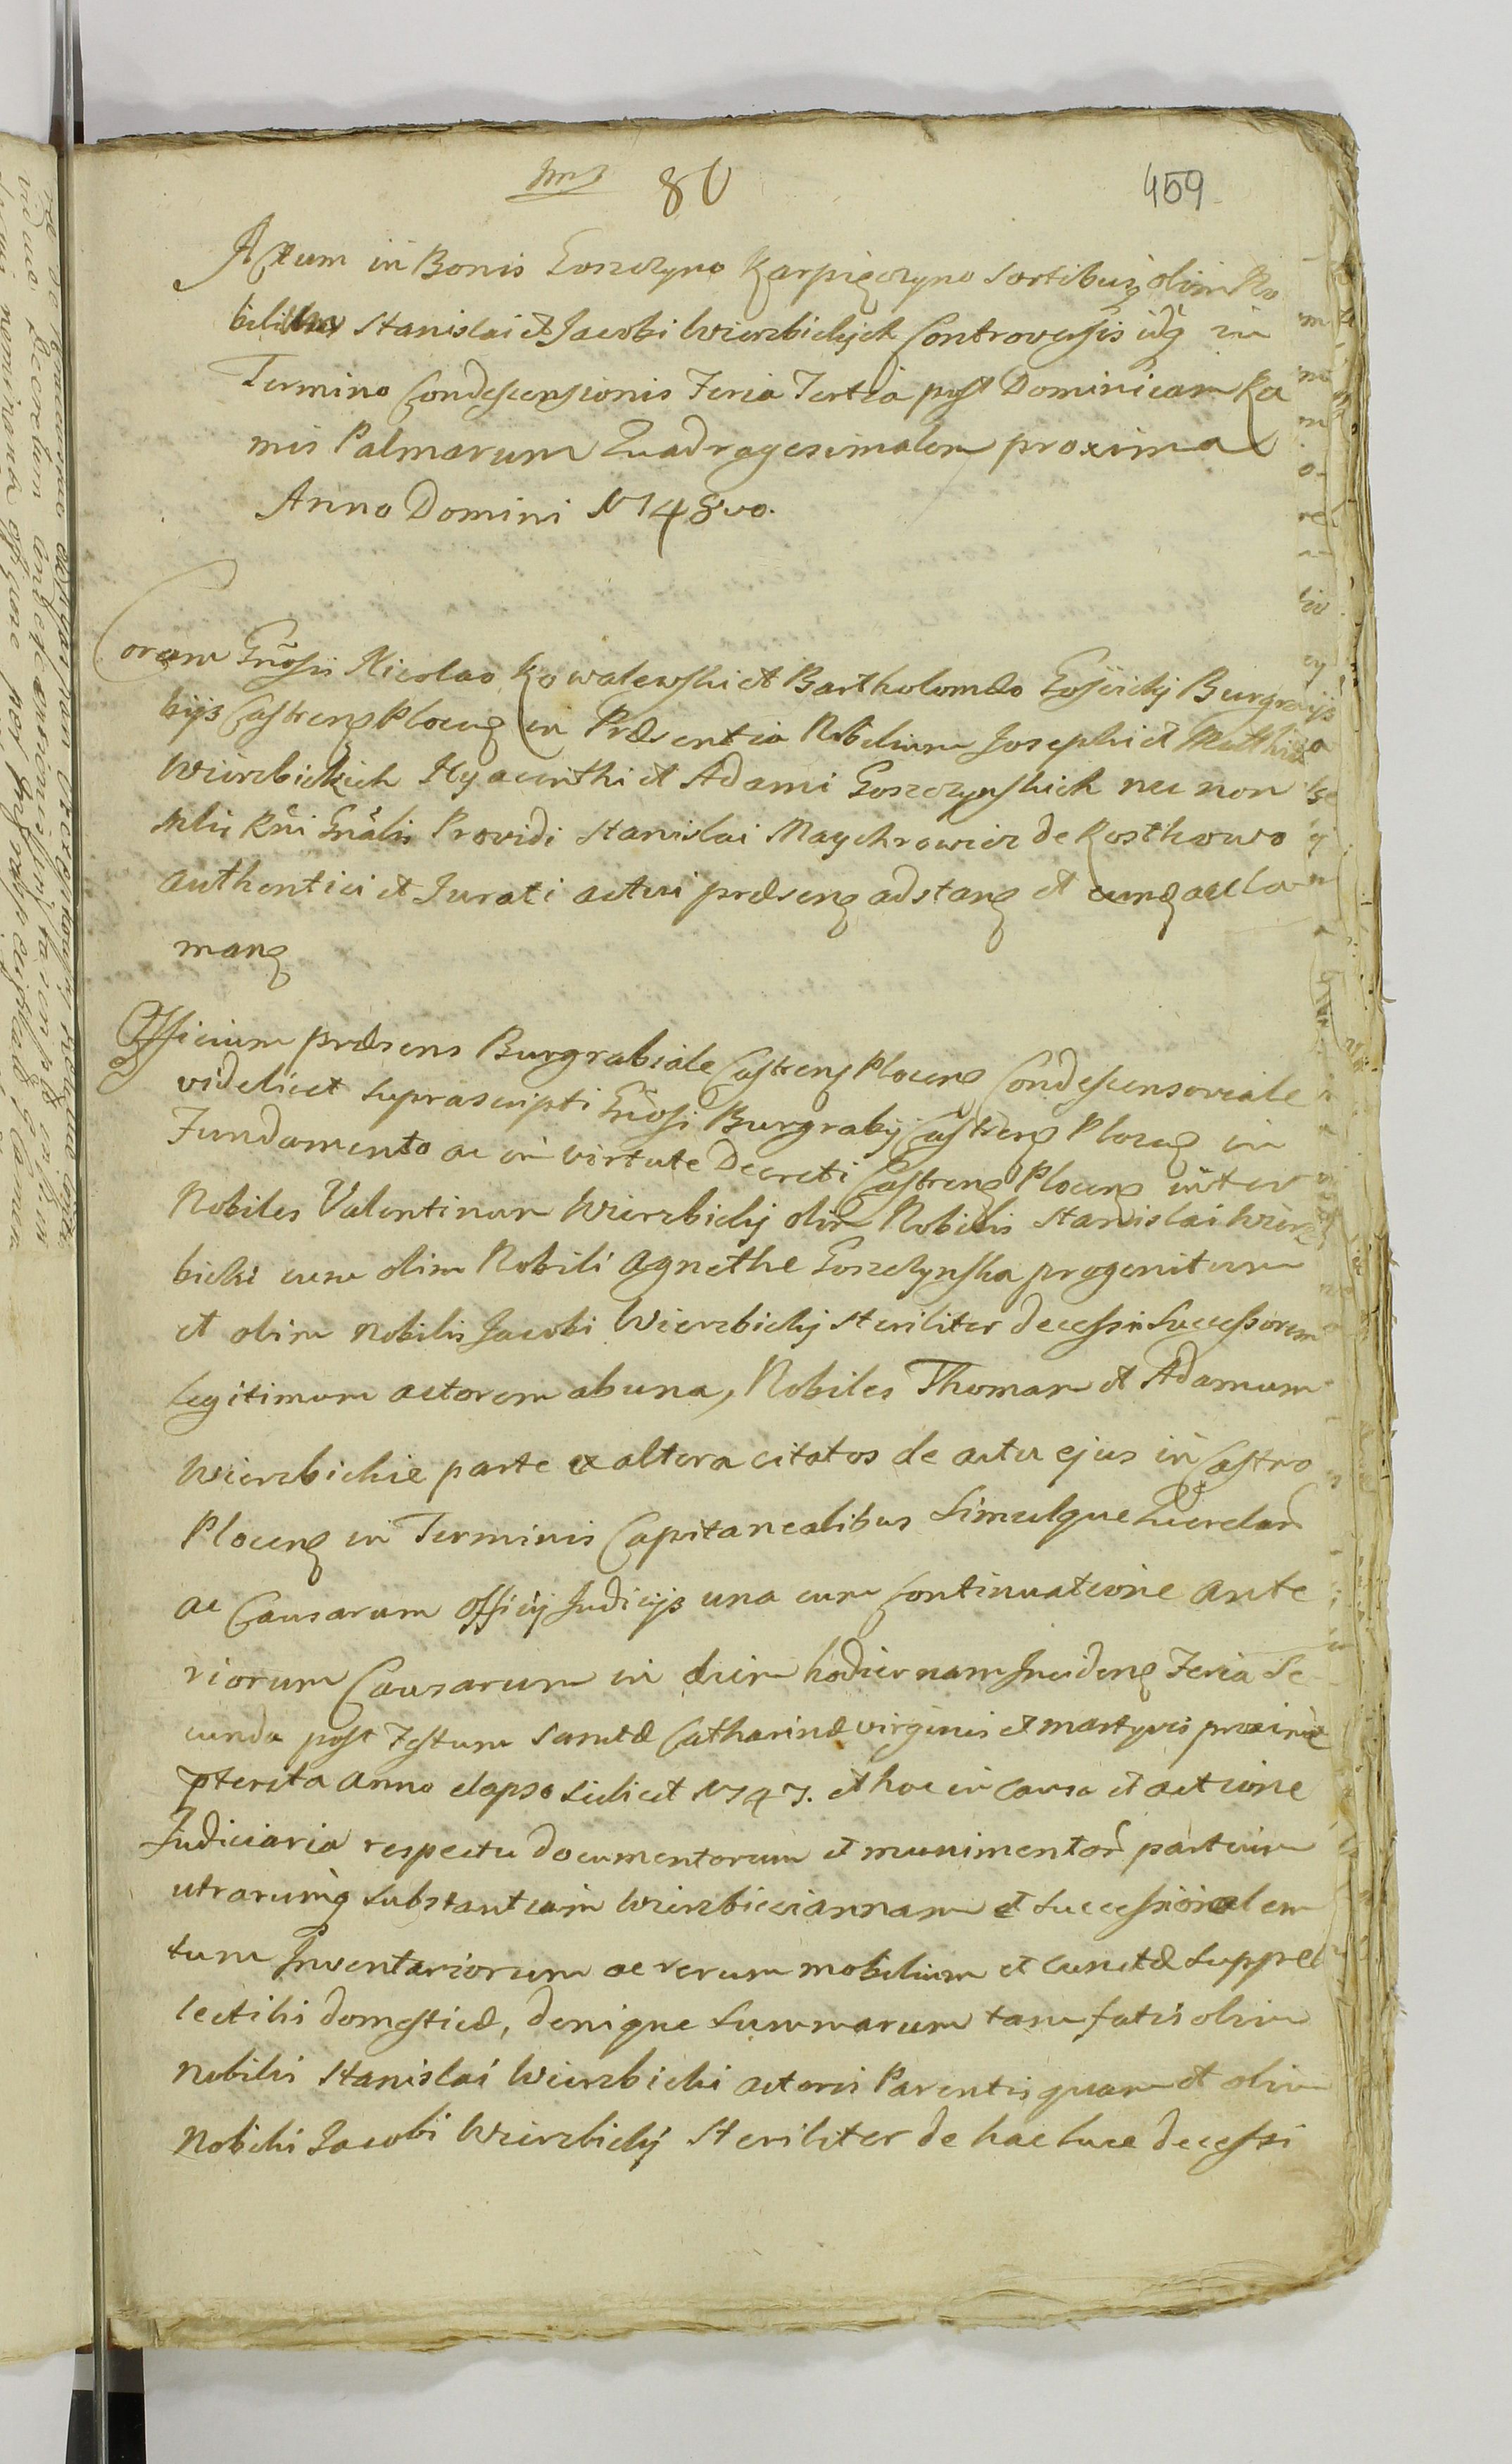 80
459
Actum in Bonis Goszczyno Karpięczyno Sortibusq olim No
bilium Stanislai et Jacobi Wierzbickych Controversis idq in
Termino Condescensionis Feria Tertia post Dominicam Ra
mis Palmarum Quadragesimalem proxima
Anno Domini 1748vo.
Coram Gnosis Nicolao Kowalewski et Bartholomæo Gosticky Burgra
bijs Castrens Plocens in Præsentia Nobilium Josephi et Matthiæ
Wierzbickich Hyacinthi et Adami Goszczynskich nec non
Mlis Rni Gnalis Providi Stanislai Maychrowicz de Rosthowo
authentici et Jurati actui præsens adstans et eund accla
mans
Officium præsens Burgrabiale Castrens Plocens Condescensoriale
videlicet suprascripti Gnosi Burgrabij Castrens Plocens in
Fundamento ac in virtute Decreti Castrens Plocens inter
Nobiles Valentinum Wierzbicky olim Nobilis Stanislai Wierz
bicki cum olim Nobili Agnethe Goszczynska progenitum
et olim Nobilis Jacobi Wierzbicky steriliter decessi Successorem
legitimum actorem ab una, Nobiles Thomam et Adamum
Wierzbickie parte ex altera citatos de actu ejus in Castro
Plocens in Terminis Capitanealibus Simulque Querelar
ac Causarum Officij Judicijs una cum Continuatione ante
riorum Causarum in diem hodiernam Incidens Feria Se
cunda post Festum Sanctæ Catharinæ virginis et martyris proxime
pterita Anno elapso scilicet 1747. et hoc in Causa et actione
Judiciaria respectu documentorum et munimentor partium
utrarumq substantiam Wierzbiccianam et successionalem
tum Inventariorum ac rerum mobilium et cunctæ suppel
lectilis domesticæ, denique Summarum tam fati olim
Nobilis Stanislai Wierzbicki actoris Parentis quam et olim
Nobilis Jacobi Wierzbicky steriliter de hac luce decessi